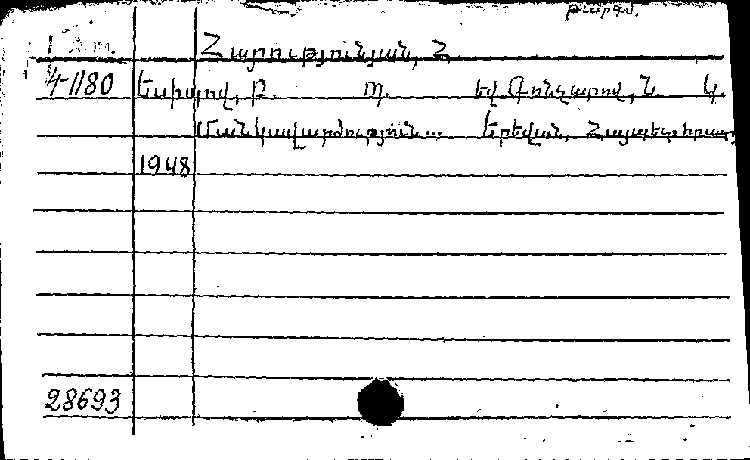 թարգմ.
Հարությունյան, Հ
4-1180 Եսիպով, Բ. Պ. եվ Գոնչարով, Ն. Կ.
Մանկավարժություն... Երեվան, Հայպետհրատ,
1948
28693